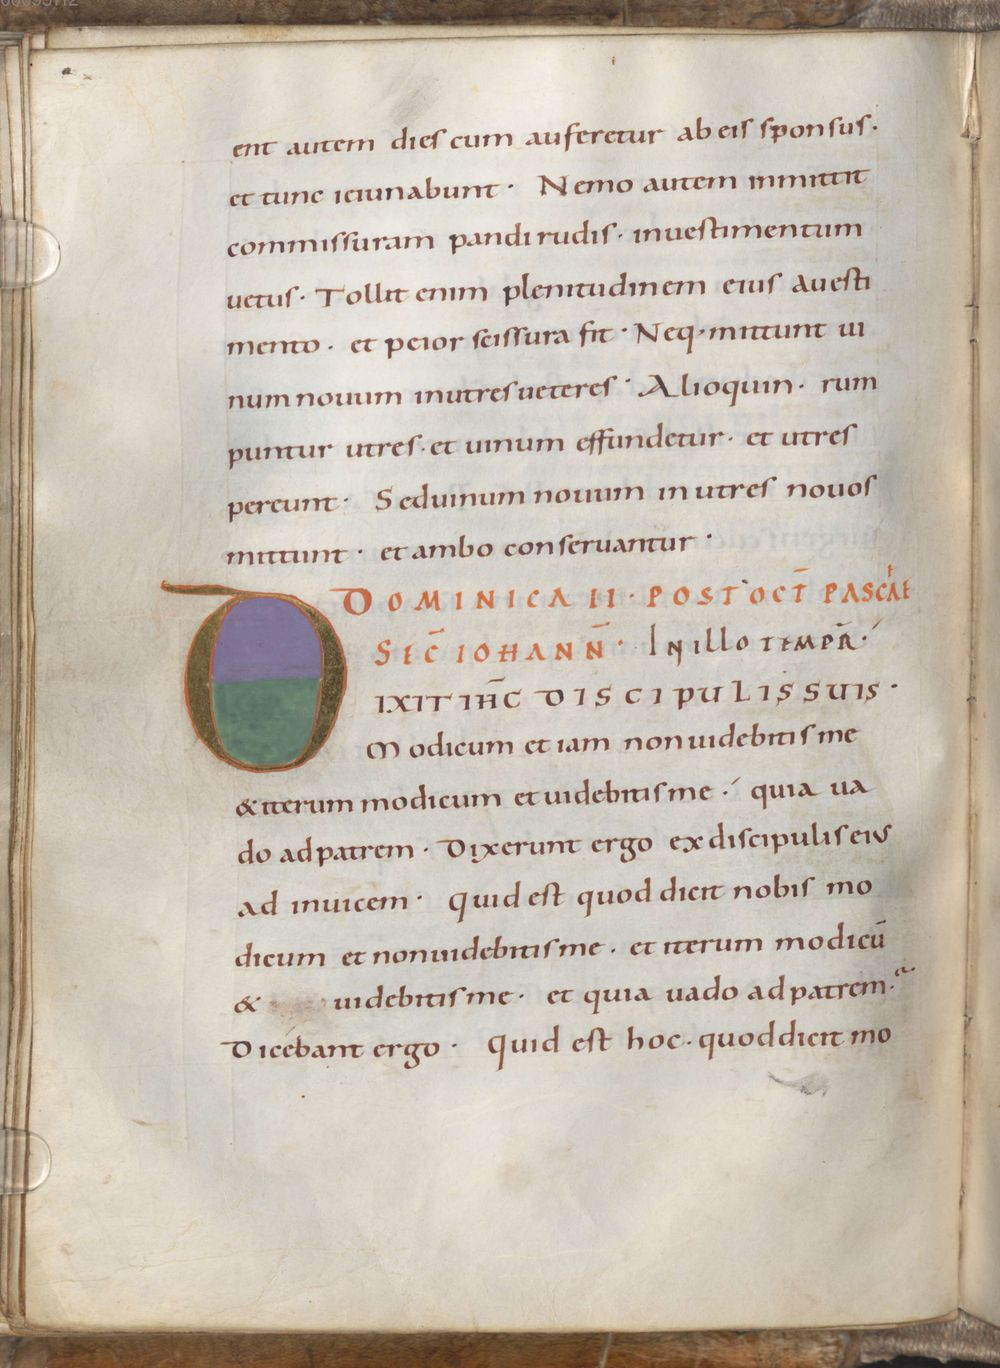 ent autem dies cum auferetur ab eis sponsus·
et tunc ieiunabunt· Nemo autem inmittit
commissuram panni rudis· in uestimentum
uetus· Tollit enim plenitudinem eius a uesti
mento· et peior scissura fit· Neq· mittunt ui
num nouum in utres ueteres· Alioquin· rum
puntur utres· et uinum effundetur· et utres
pereunt· Sed uinum nouum in utres nouos
mittunt· et ambo conseruantur·
DOMINICA II· POST OCT̄ PASCHAE
SEC̄ IOHANN̄· In illo tempr̄·
DIXIT IHC̄ DISCIPULIS SUIS·
Modicum et iam non uidebitis me
& iterum modicum et uidebitis me· quia ua
do ad patrem· Dixerunt ergo ex discipulis eius
ad inuicem· Quid est quod dicit nobis mo
dicum et non uidebitis me· et iterum modicū
& uidebitis me· et quia uado ad patrem·
Dicebant ergo· Quid est hoc· quod dicit mo